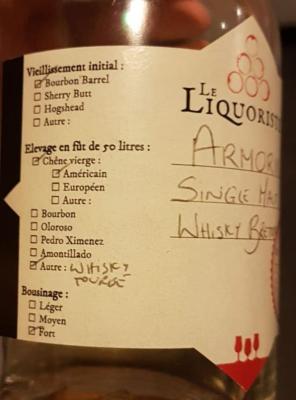 Vieillissement initial :
☑ Bourbon Barrel
☐ Sherry Butt
☐ Hogshead
☐ Autre :
Elevage en fût de 50 litres :
☑ Chêne vierge :
☑ Américain
☐ Européen
☐ Autre :
☐ Bourbon
☐ Oloroso
☐ Pedro Ximenez
☐ Amontillado
☑ Autre : WHISKY
TOURBÉ
Bousinage :
☐ Léger
☐ Moyen
☑ Fort
LE
LIQUORIST
ARMOR
SINGLE MA
WHISKY BRET